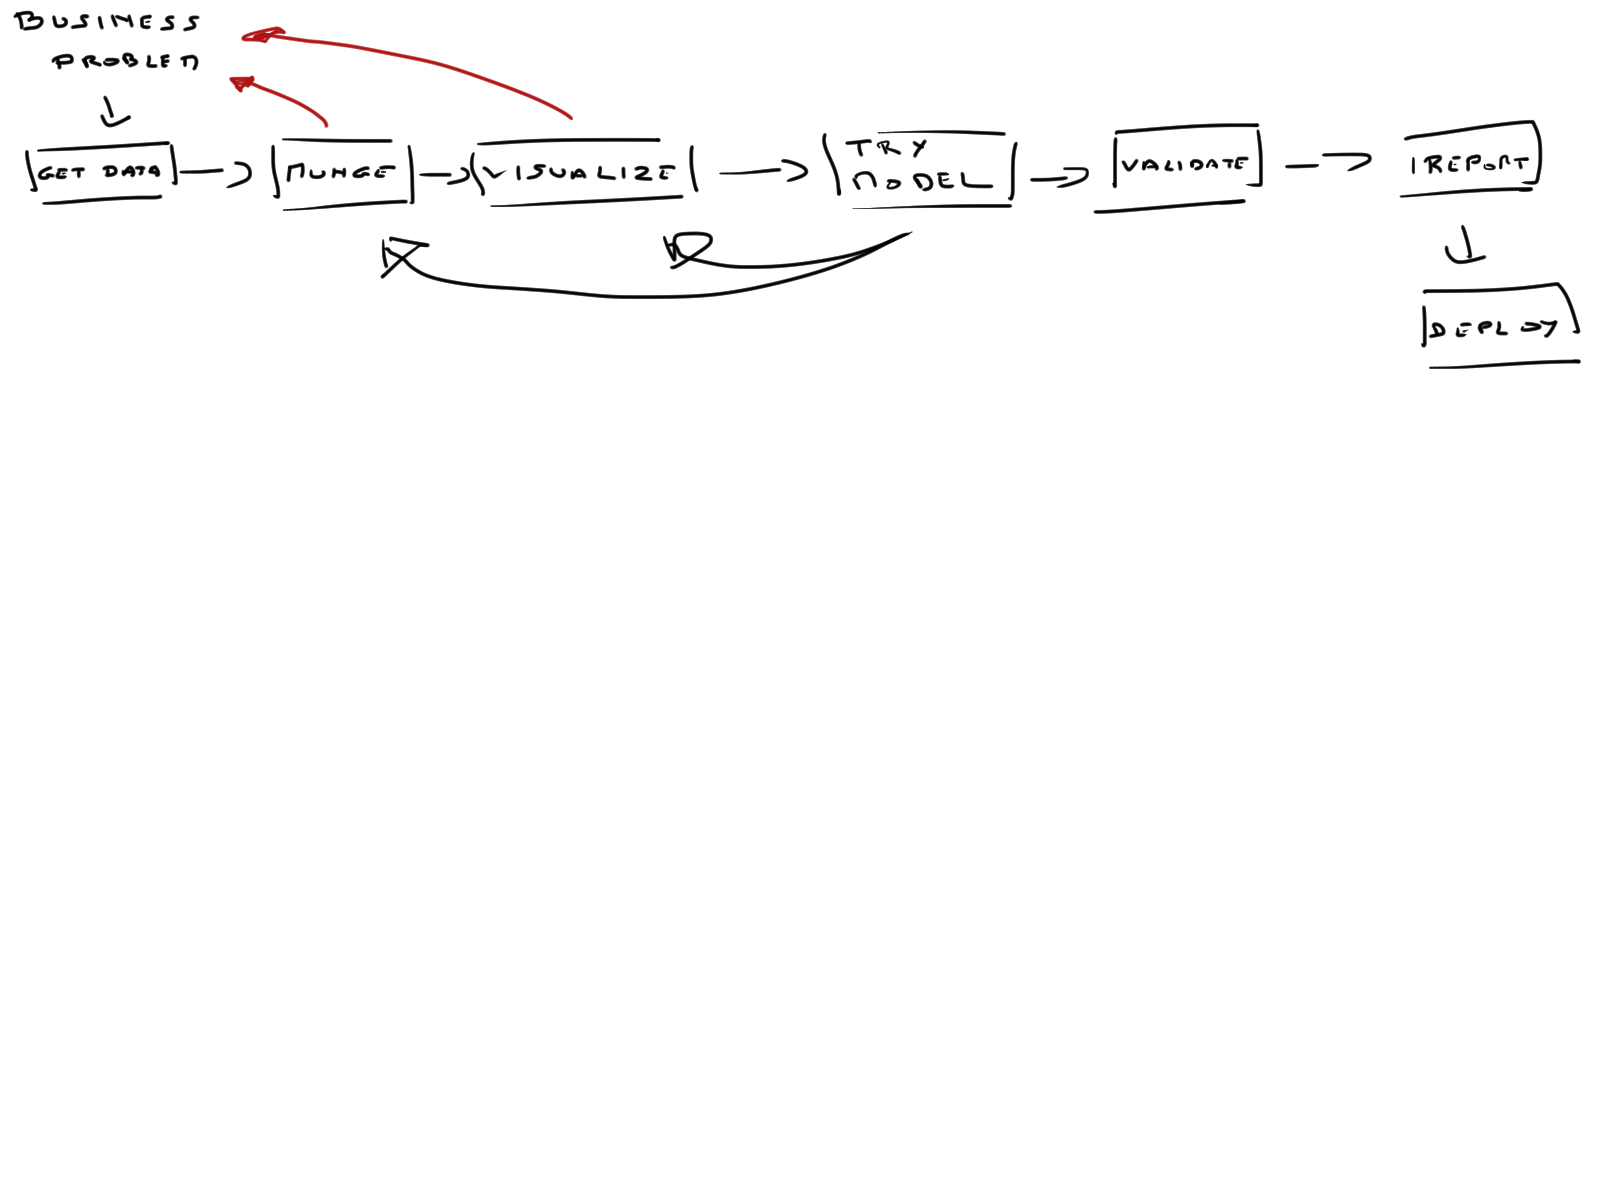 BUSINESS
PROBLEM
GET DATA
MUNGE
VISUALIZE
TRY
MODEL
VALIDATE
REPORT
DEPLOY